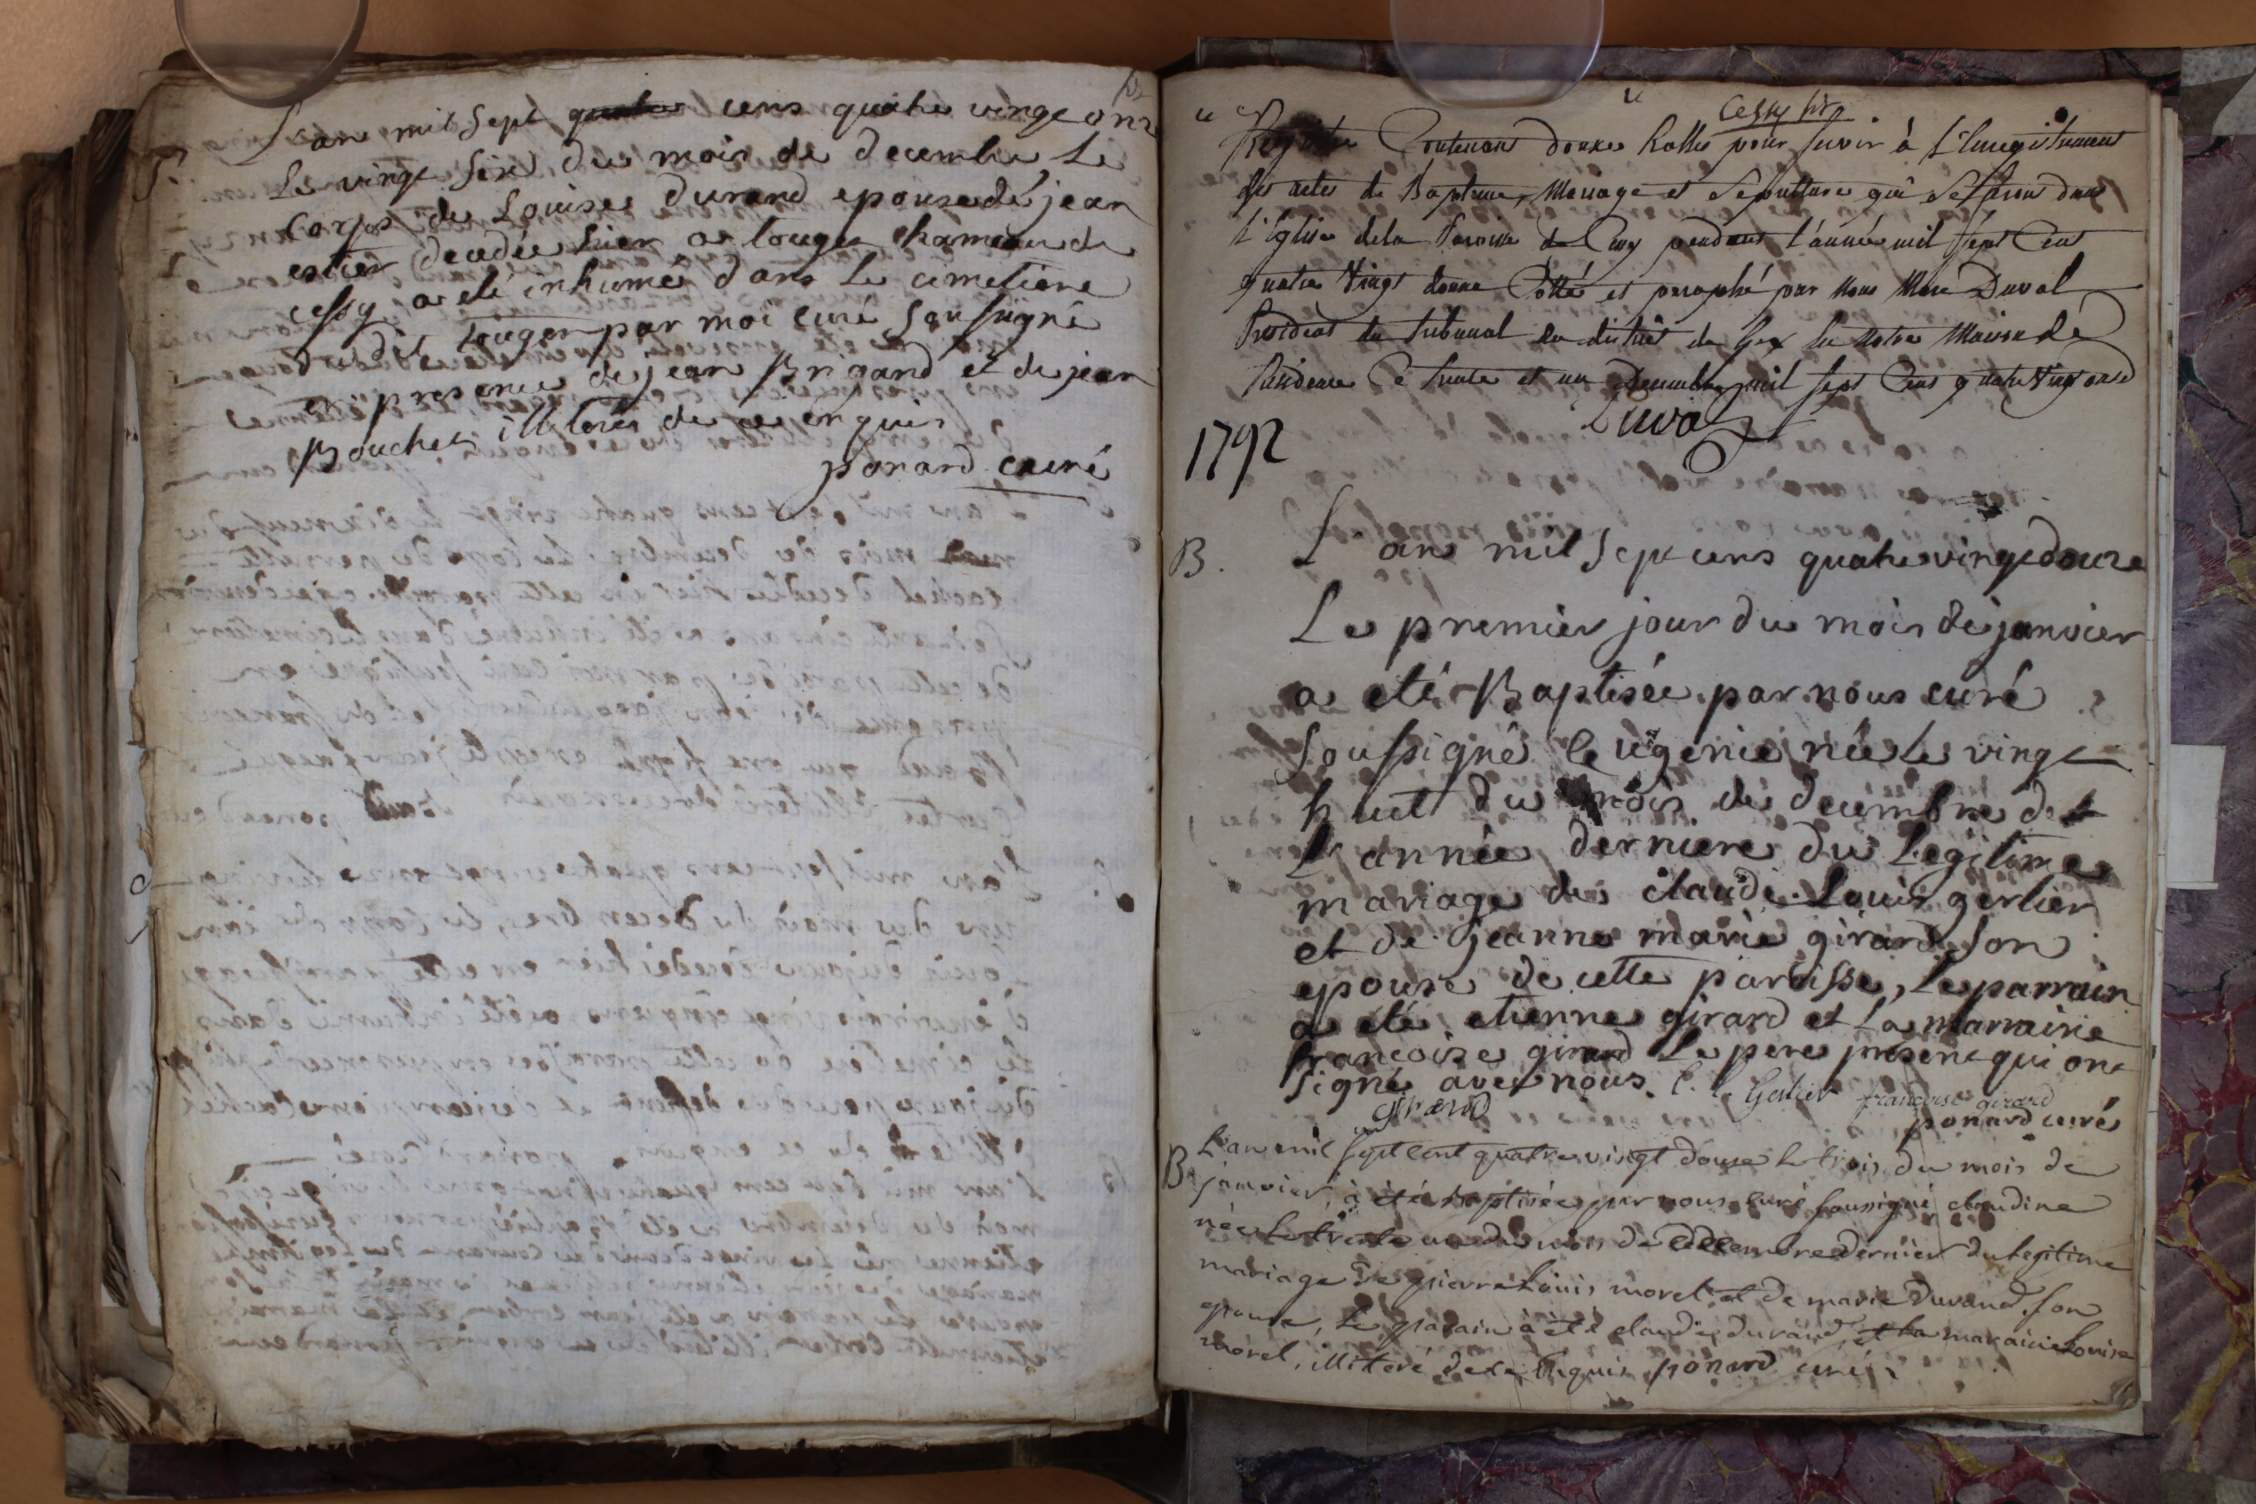 L'an mil sept cens quatre vingt onze
S.
Le vingt six du mois de decembre Le
Corps de Louise durand epouse de jean
decedée hier a tougin hameau de
cessy a eté inhumé dans le cimetiere
dudit tougin par moi curé soussigné
en presence de jean Brigand et de jean
Bouchet illiterés de ce enquis
ponard curé
Cessy
Registre Contenant douze holles pour servir à L'Enregistrement
des actes de Bapteme, Mariage et Sépulture qui se feront dans
L'Eglise de la Paroisse de Cessy pendant l'année mil sept Cens
quatre Vingt douze Cotté et paraphé par Nous Marc Duval
Président du tribunal du district de Gex en Notre Maison de
Residence Ce trente et un Decembre mil sept Cens quatre Vingt onze
Duval
1792
B.
L'an mil sept cens quatre vingt douze
Le premier jour du mois de janvier
a eté Baptisée par nous curé
soussigné Eugenie née Le vingt
huit du mois de decembre de
L'année derniere du Legitime
mariage de claude Louis gerlier
et de jeanne marie girard son
epouse de cette paroisse, Le parrain
a eté etienne girard et La marraine
francoise girard Le pere present qui ont
signé avec nous. C. L. Gerlier françoise girard
girard
ponard curé
B.
L'an mil sept cent quatre vingt douze le trois du mois de
janvier à été baptisée par nous curé soussigné claudine
née le trente un du mois de decembre dernier du legitime
mariage de pierre Louis morel et de marie Durand son
epouse, Le parain à été claude durand et la maraine Louise
morel, illiteré de ce Enquis ponard curé